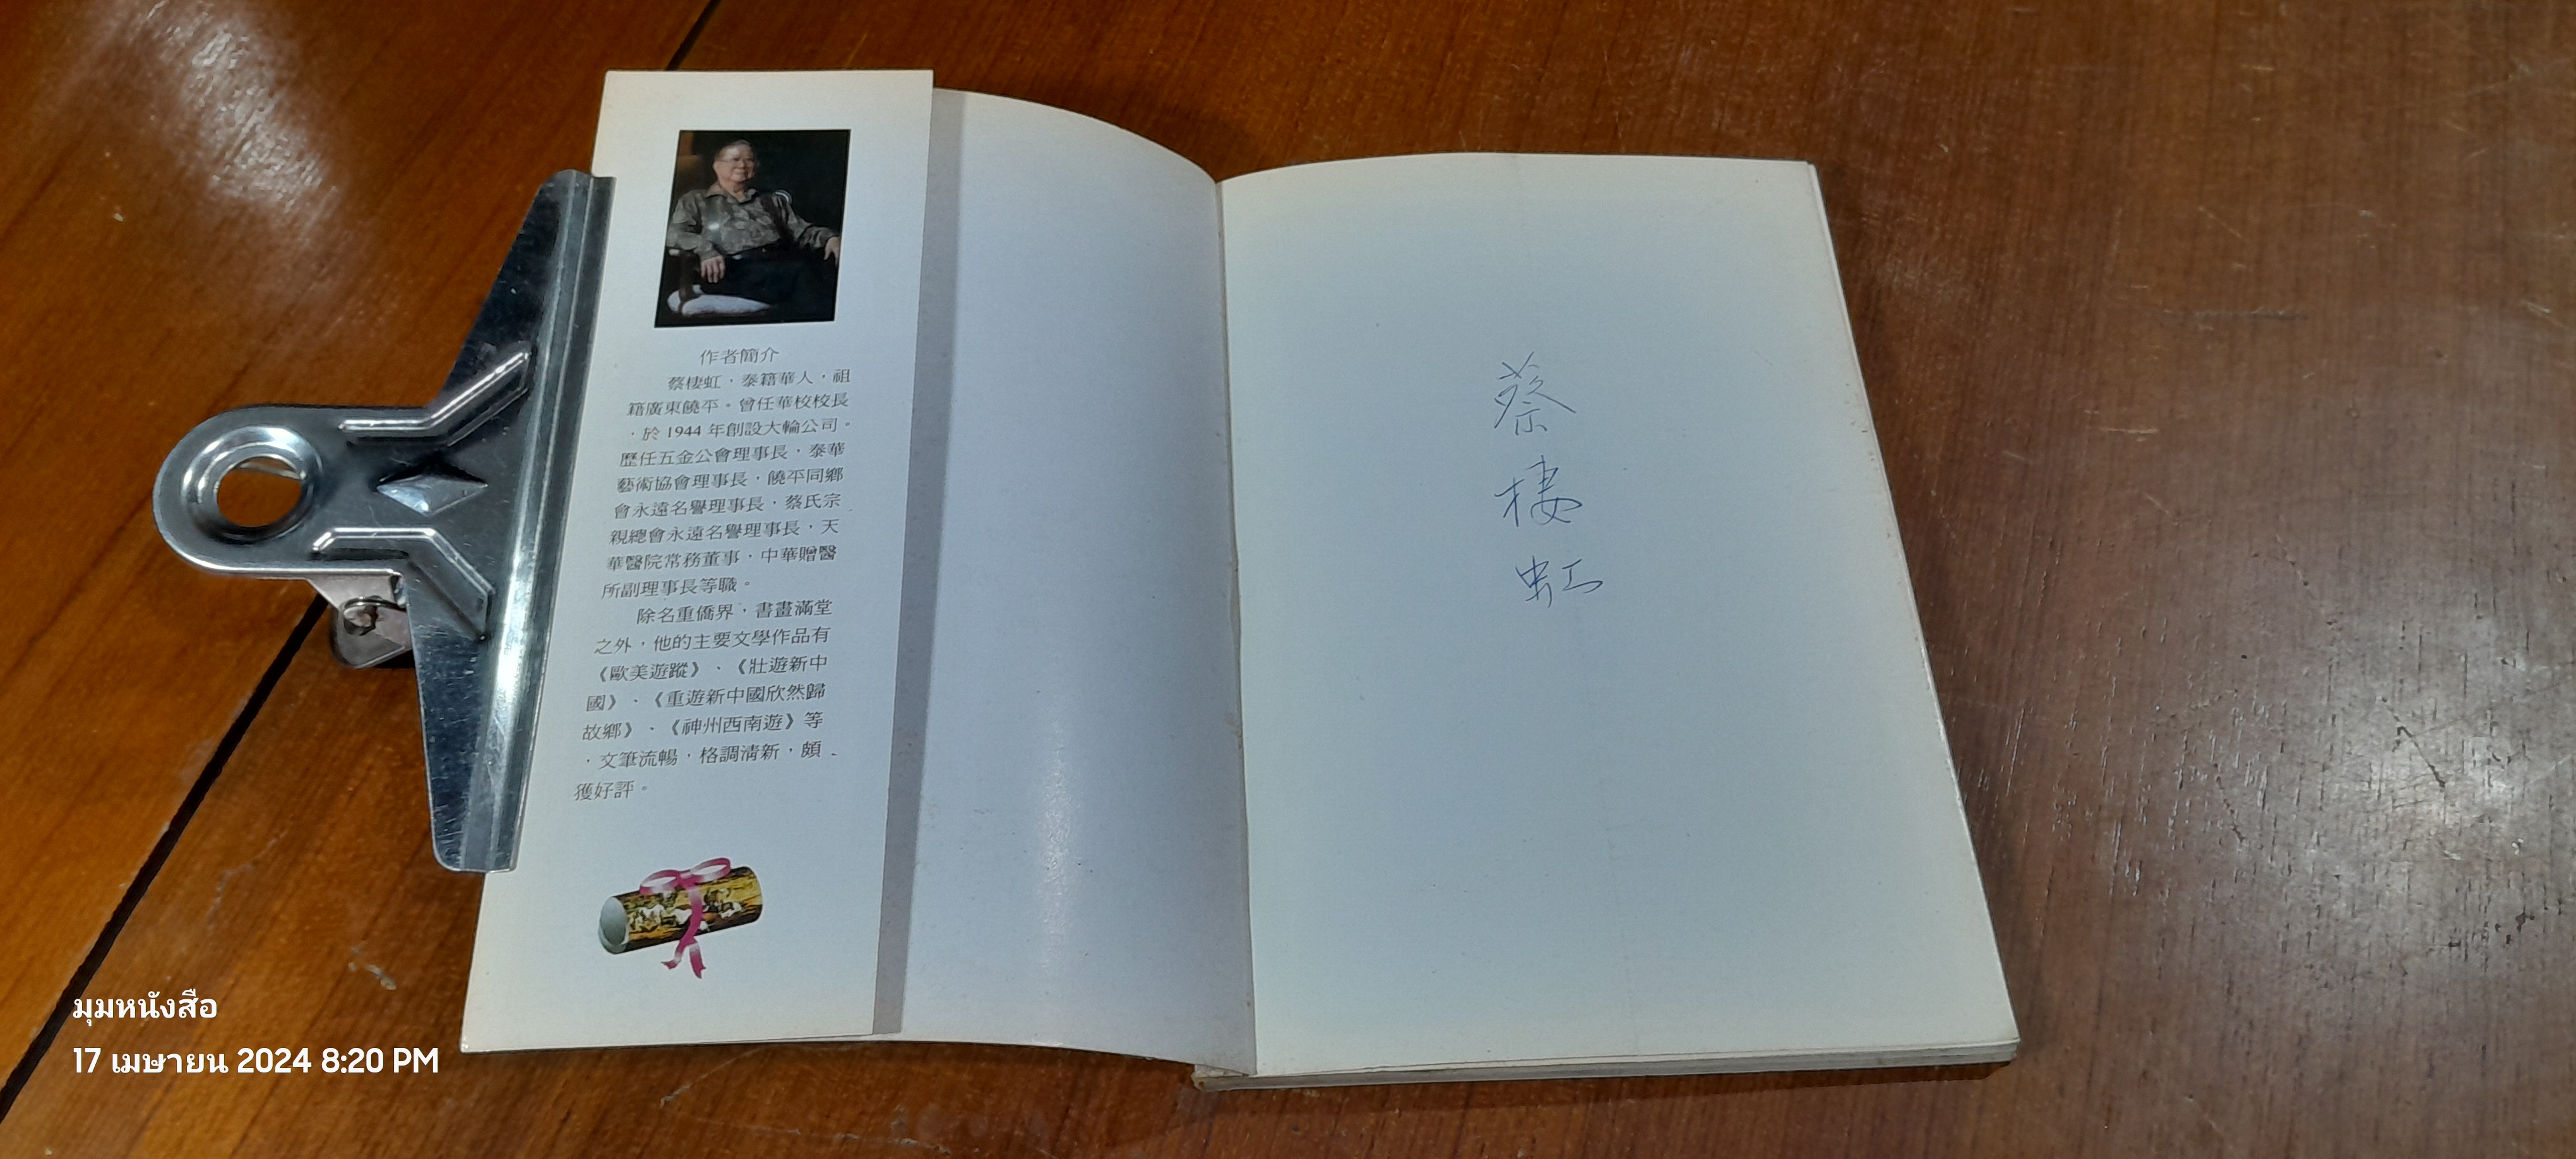 作者簡介
蔡棲虹，泰籍華人，祖
籍廣東饒平。曾任華校校長
，於 1944 年創設大輪公司。
歷任五金公會理事長，泰華
藝術協會理事長，饒平同鄉
會永遠名譽理事長，蔡氏宗
親總會永遠名譽理事長，天
華醫院常務董事，中華贈醫
所副理事長等職。
除名重僑界，書畫滿堂
之外，他的主要文學作品有
《歐美遊蹤》、《壯遊新中
國》、《重遊新中國欣然歸
故鄉》、《神州西南遊》等
，文筆流暢，格調清新，頗
獲好評。
蔡
棲
虹
มุมหนังสือ
17 เมษายน 2024 8:20 PM